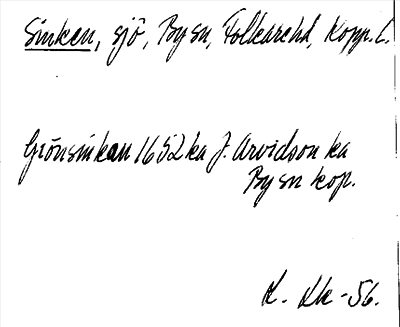 Sinken, sjö, By sn, Folkare hd, Kopp. l.
Grönsinkan 1652 ka J. Arvidson ka
By sn kop.